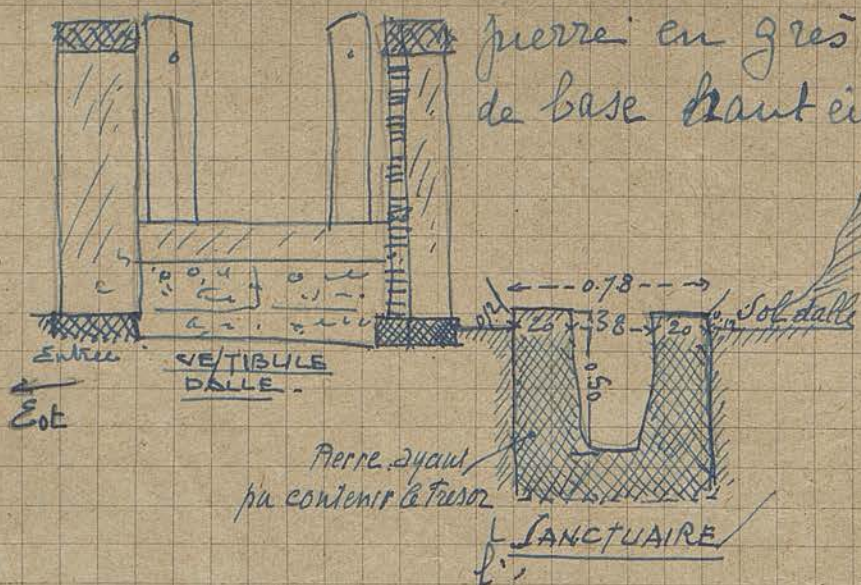 pierre en grès
de base haut
0.78
0.12
20
38
20
0.12
Sol dalle
0.50
Entrée
VESTIBULE
DALLE.
Est
Pierre ayant
pu contenir le Trésor
SANCTUAIRE